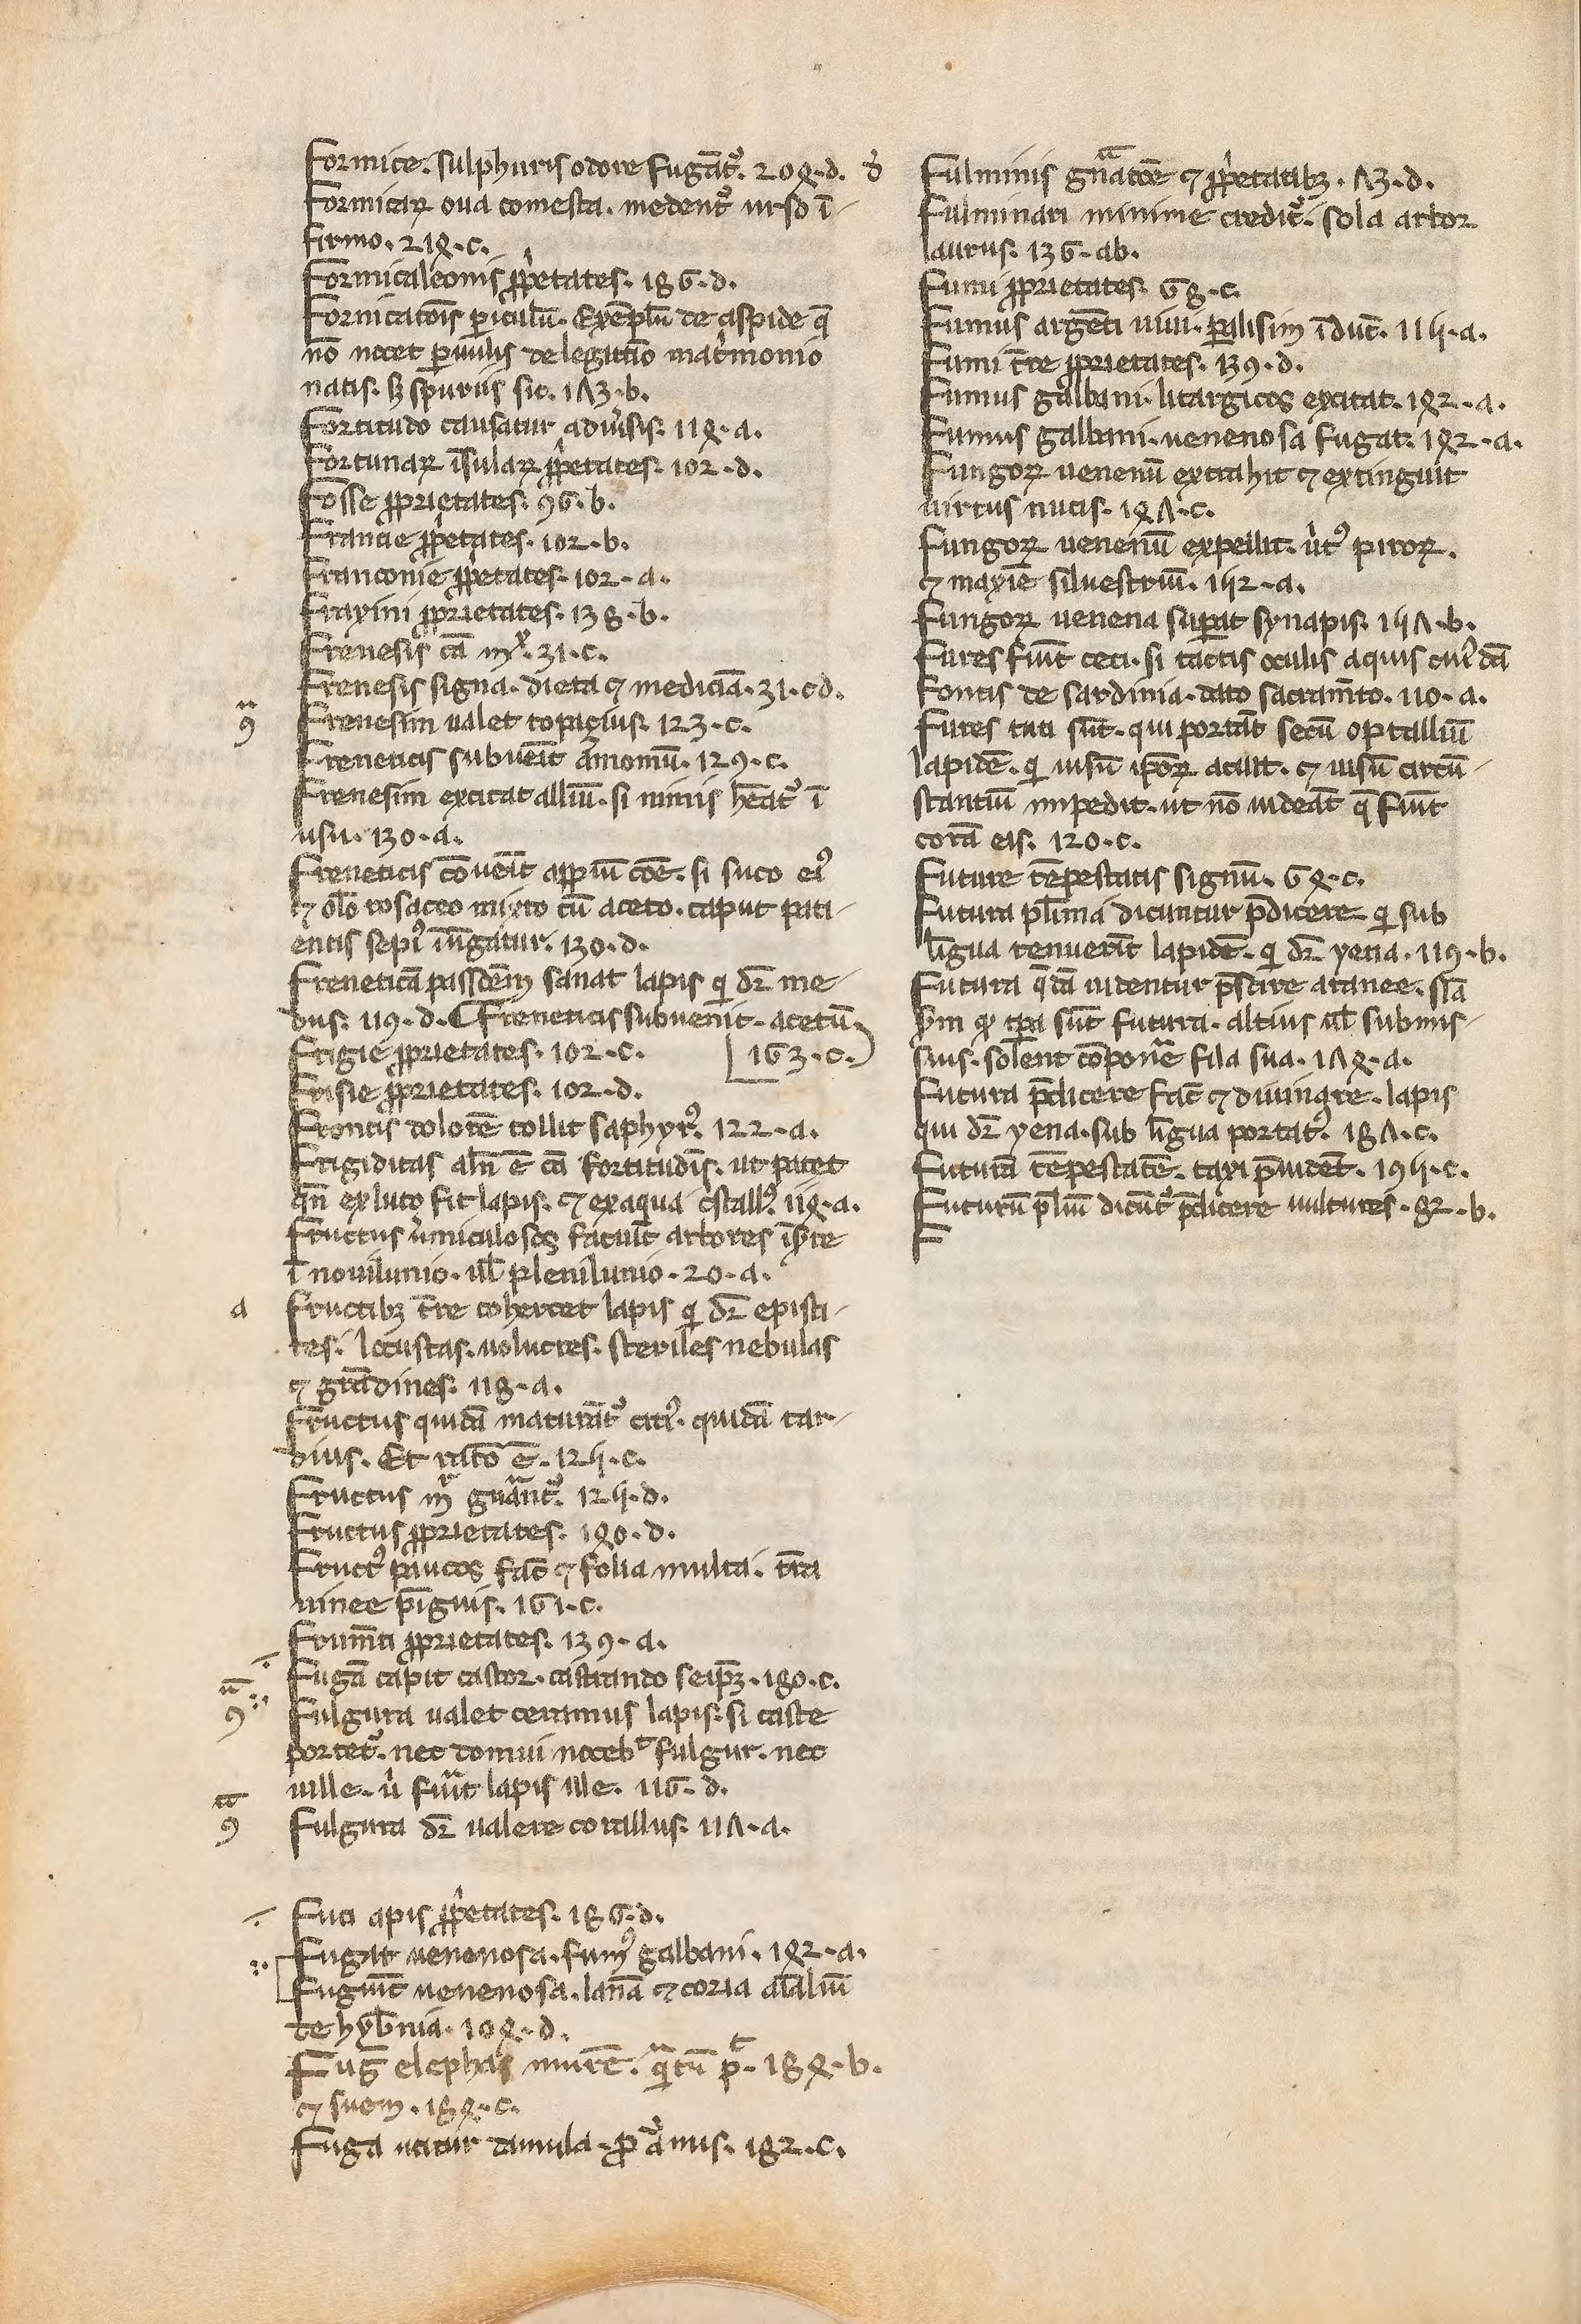 Formice. sulphuris odore fugāt᷑. 204. d.
Formicaꝝ oua comesta. medent᷑ urso ī-
firmo. 214. c.
Formicaleonis ꝓp̍etates. 186. d.
Fornicatōis ꝑiculū. Exēplū de aspide q̄
nō nocet ꝑuulis de legittīo mat̍monio
natis. sꝫ spuriis sic. 173. b.
Fortitudo causatur aduīsis. 114. a.
Fortunaꝝ īsulaꝝ ꝓp̍etates. 102. d.
Fosse ꝓprietates. 96. b.
Francie ꝓp̍etates. 102. b.
Franconie ꝓp̍etates. 102. a.
Fraxini ꝓprietates. 138. b.
Frenesis cā mͣ. 31. c.
Frenesis signa. dieta ⁊ mediciā. 31. cd.
ꝯͣ Frenesim ualet topacius. 123. c.
Freneticis subueīt amomū. 129. c.
Frenesim excitat alliū. si nimis hēat᷑ ī
usu. 130. a.
Freneticis cōueīt appiū cōe. si suco ei᷒
⁊ olō rosaceo mixto cū aceto. caput pati-
entis sepi᷒ iūgatur. 130. d.
Freneticā passiōem sanat lapis qͥ dꝛ̄ me-
dus. 119. d. ¶ Freneticis subuenit. acetū.
Frigie ꝓprietates. 102. c. 163. c.
Frisie ꝓprietates. 102. d.
Frontis dolorē tollit saphyr᷒. 122. a.
Frigiditas aln̄ ē cā fortitudīs. ut patet
qn̄ ex luto fit lapis. ⁊ ex aqua c̍stall᷒. 114. a.
Fructus u̍miculosos faciūt arbores īs̍te
ī nouilunio. ul̄ plenilunio. 20. a.
a Fructibꝫ t̄re cohercet lapis qͥ dꝛ̄ episti-
tes. locustas. uolucres. steriles nebulas
⁊ grādines. 118. a.
Fructus quidā maturāt᷑ citi᷒. quidā tar-
dius. Et ratō ē. 125. c.
Fructus mͣ gn̄ant᷑. 125. d.
Fructus ꝓprietates. 140. d.
Fruct᷒ paucos fac̄ ⁊ folia multa. t̄ra
uinee pīguis. 161. c.
Frum̄ti ꝓprietates. 139. a.
Fugā capit castor. castrando seip̄ꝫ. 180. c.
ꝯͣ Fulgura ualet ceramus lapis. si caste
portet᷑. nec domui nocebͭ fulgur. nec
uille. u̍ fuͣit lapis ille. 116. d.
ꝯͣ Fulgura dꝛ̄ ualere corallus. 117. a.
Fuci apis ꝓp̍etates. 186. d.
Fugat uenenosa. fum᷒ galbani. 142. a.
Fugiūt uenenosa. lanā ⁊ coria aīaliū
de hyb̄nia. 104. d.
Fuḡ elephas murē. qͣtū pͭ. 184. b.
⁊ suem. 184. c.
Fuga utitur damula. ꝓ aͬmis. 182. c.
Fulminis gn̄atōe ⁊ ꝓp̍etatibꝫ. 73. d.
Fulminari minime credit᷑. sola arbor
laurus. 136. ab.
Fumi ꝓprietates. 68. c.
Fumus argēti uiui. ꝑalisim īduc̄. 115. a.
Fumi t̄re ꝓprietates. 139. d.
Fumus galbani. litargicos excitat. 142. a.
Fumus galbani. uenenosa fugat. 142. a.
Fungoꝝ uenenū extrahit ⁊ extinguit
uirtus nucis. 147. c.
Fungoꝝ uenenū expellit. u̍t᷒ piroꝝ.
⁊ maxīe siluestriū. 152. a.
Fungoꝝ uenena suꝑat synapis. 157. b.
Fures fiūt ceci. si tactis oculis aquis cui᷒dā
fontis de sardinia. dato sacram̄to. 110. a.
Fures tuti sūt. qui portāt secū optalliū
lapidē. qͥ uisū ip̄oꝝ acuit. ⁊ uisū circū-
stantiū impedit. ut nō uideāt q̄ fiūt
corā eis. 120. c.
Future tēpestatis signū. 64. c.
Futura pl̄ima dicuntur p̄dicere qͥ sub
līgua tenuerīt lapidē. qͥ dꝛ̄ yena. 119. b.
Futura q̄dā uidentur p̄scire aranee. nā
s̄m ꝙ tꝑa sūt futura. altius ul̄ submis-
sius. solent cōponͤe fila sua. 174. a.
Futura p̄dicere fac̄ ⁊ diuinare. lapis
qui dꝛ̄ yena. sub līgua portat᷒. 187. c.
Futurā tēpestatē. taxi p̄uidēt. 195. c.
Futurū p̄liū dicūt᷑ p̄dicere uultures. 82. b.
F